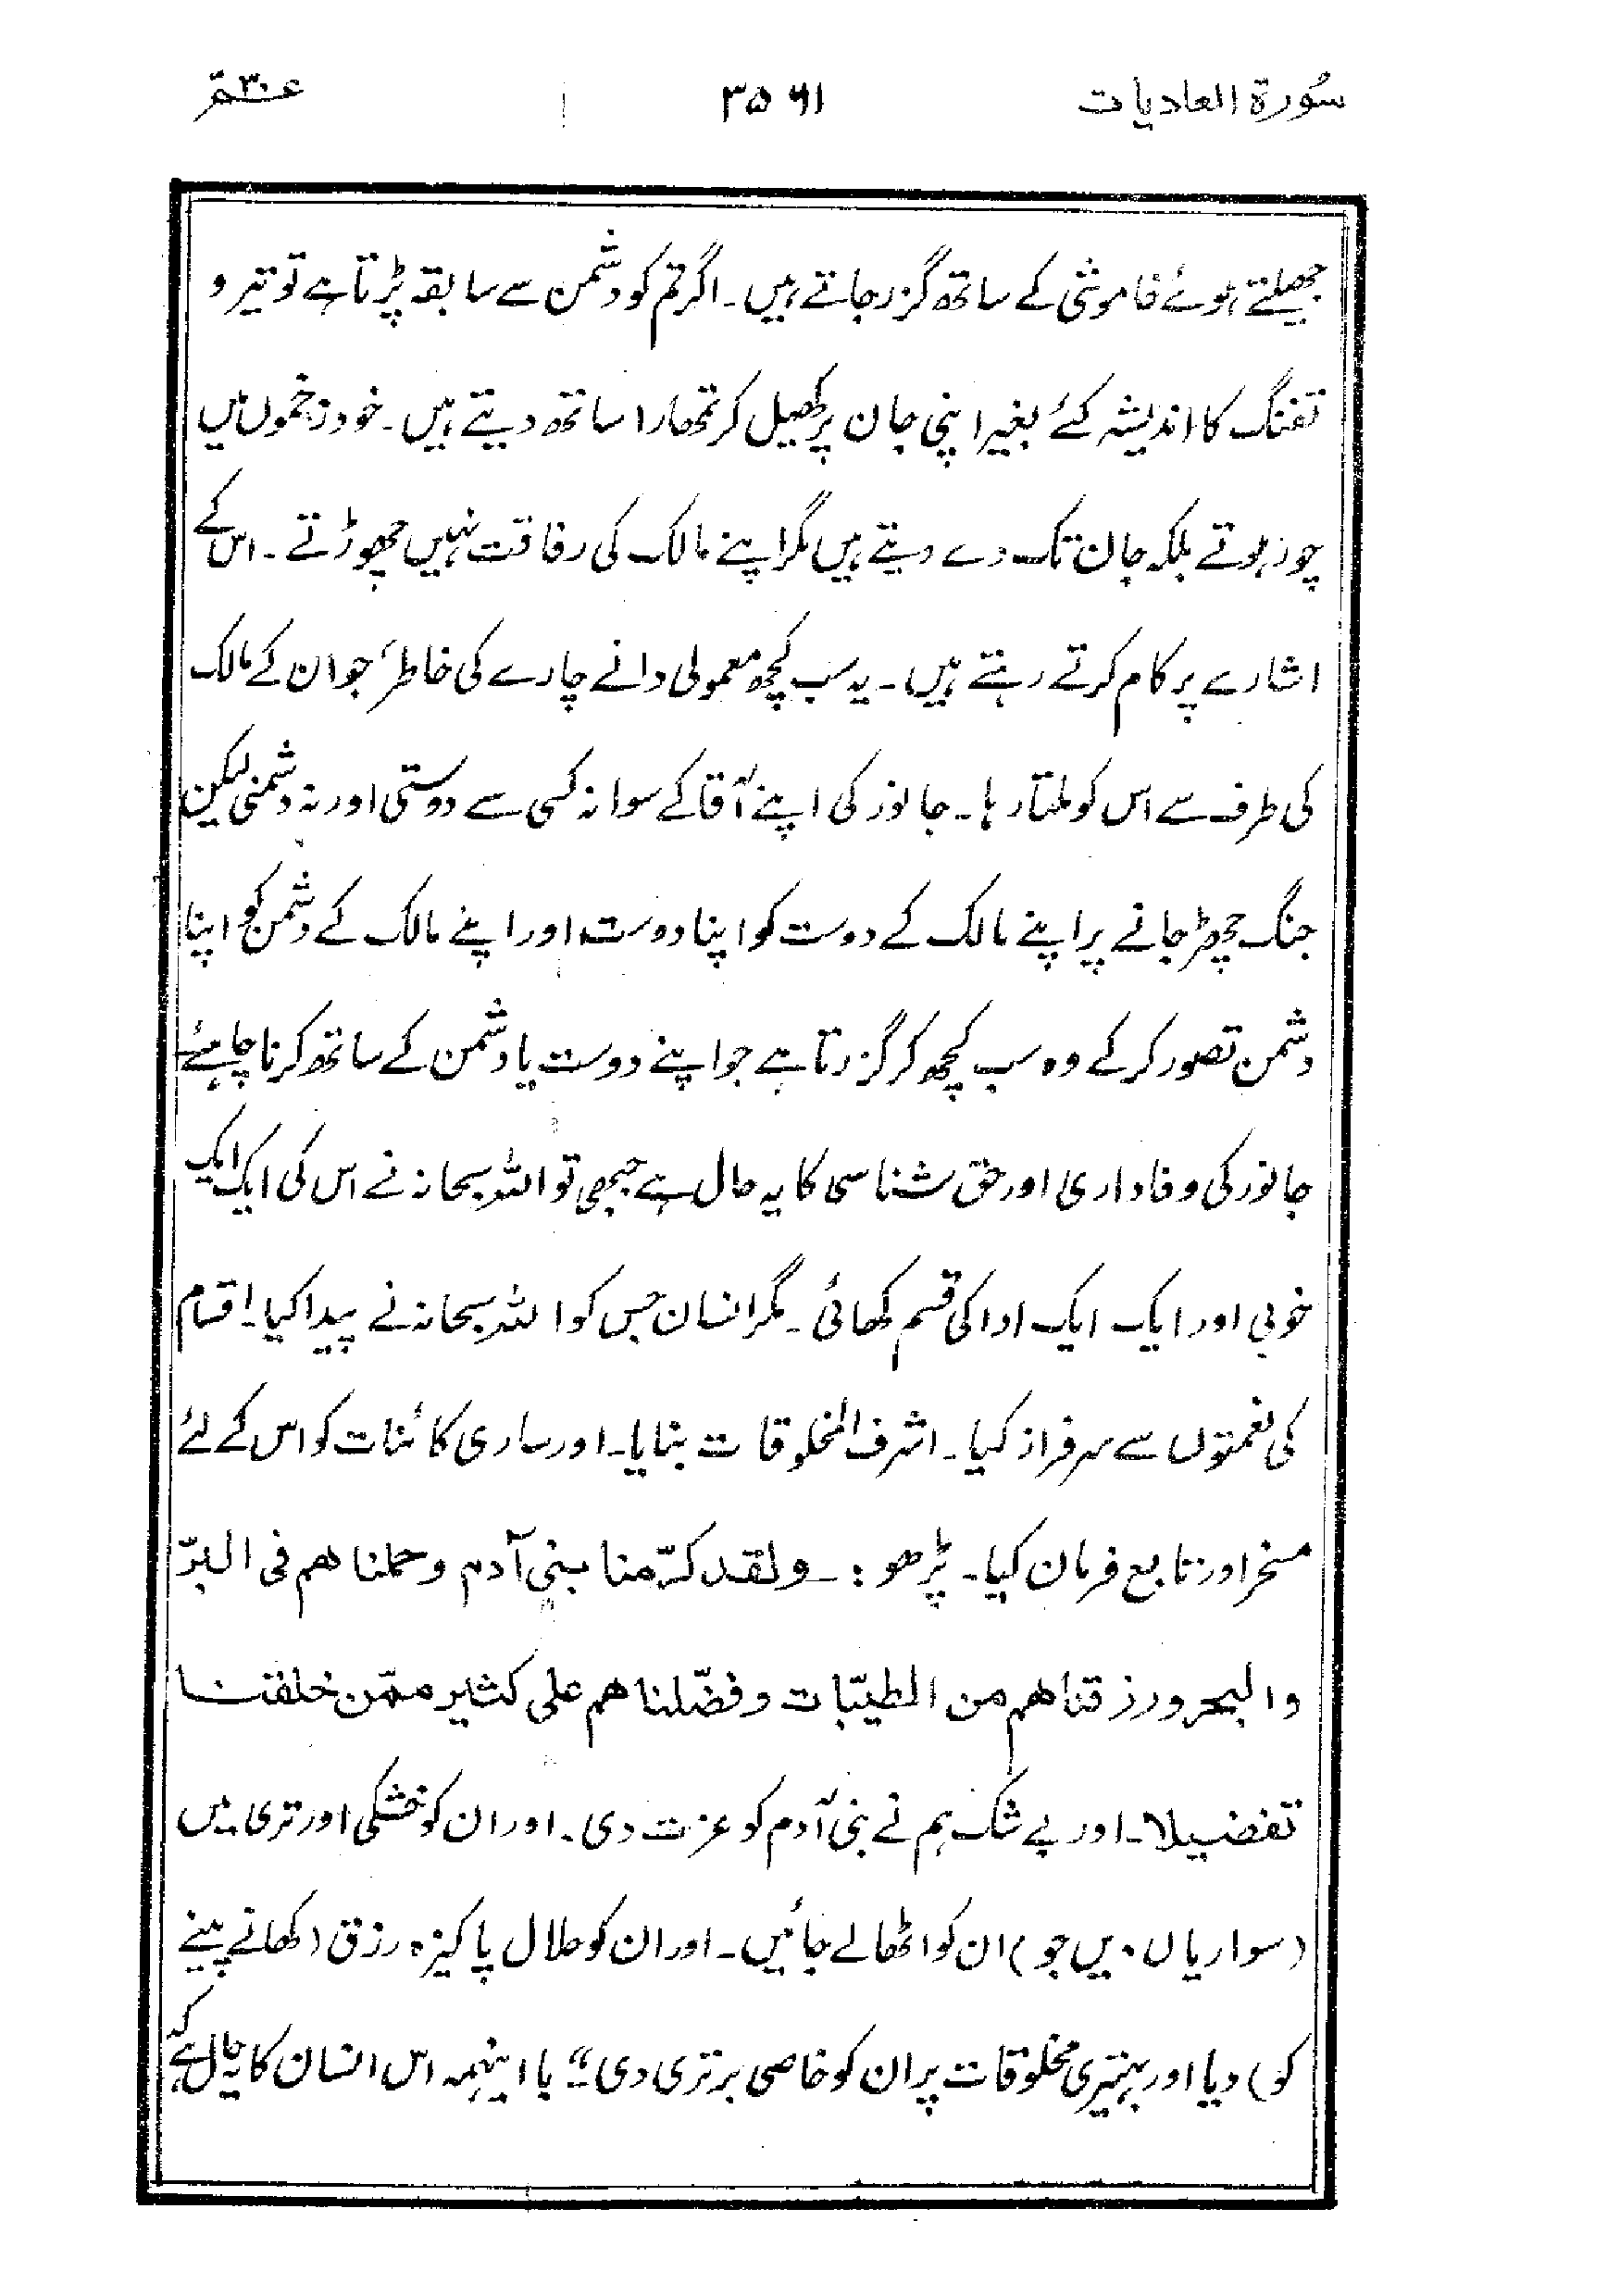 سُورۃ العادیات ۳۵۶۱ عۤم ۳۰
جھیلتے ہوئے خاموشی کے ساتھ گزر جاتے ہیں۔ اگر تم کو دشمن سے سابقہ پڑتا ہے تو تیر و
تفنگ کا اندیشہ کئے بغیر اپنی جان پر کھیل کر تمھارا ساتھ دیتے ہیں۔ خود زخموں میں
چور ہوتے بلکہ جان تک دے دیتے ہیں مگر اپنے مالک کی رفاقت نہیں چھوڑتے۔ اس کے
اشارے پر کام کرتے رہتے ہیں۔ یہ سب کچھ معمولی دانے چارے کی خاطر، جو ان کے مالک
کی طرف سے اس کو ملتا رہا۔ جانور کی اپنے آقا کے سوا نہ کسی سے دوستی اور نہ دشمنی لیکن
جنگ چھڑ جانے پر اپنے مالک کے دوست کو اپنا دوست اور اپنے مالک کے دشمن کو اپنا
دشمن تصور کر کے وہ سب کچھ کر گزرتا ہے جو اپنے دوست یا دشمن کے ساتھ کرنا چاہئے
جانور کی وفاداری اور حق شناسی کا یہ حال ہے جبھی تو اللہ سبحانہ نے اس کی ایک ایک
خوبی اور ایک ایک ادا کی قسم کھائی۔ مگر انسان جس کو اللہ سبحانہ نے پیدا کیا! اقسام
کی نعمتوں سے سرفراز کیا۔ اشرف المخلوقات بنایا۔ اور ساری کائنات کو اس کے لئے
مسخر اور تابع فرمان کیا۔ پڑھو :۔ ولقد کرّمنا بنی آدم وحملناھم فی البرّ
والبحر ورزقناھم من الطیّبات وفضّلناھم علی کثیر ممّن خلقنا
تفضیلا۔ اور بے شک ہم نے بنی آدم کو عزت دی۔ اور ان کو خشکی اور تری میں
(سواریاں دیں جو) ان کو اٹھالے جائیں۔ اور ان کو حلال پاکیزہ رزق (کھانے پینے
کو) دیا اور بہتیری مخلوقات پر ان کو خاصی برتری دی۔“ با اینہمہ اس انسان کا یہ حال ہے کہ